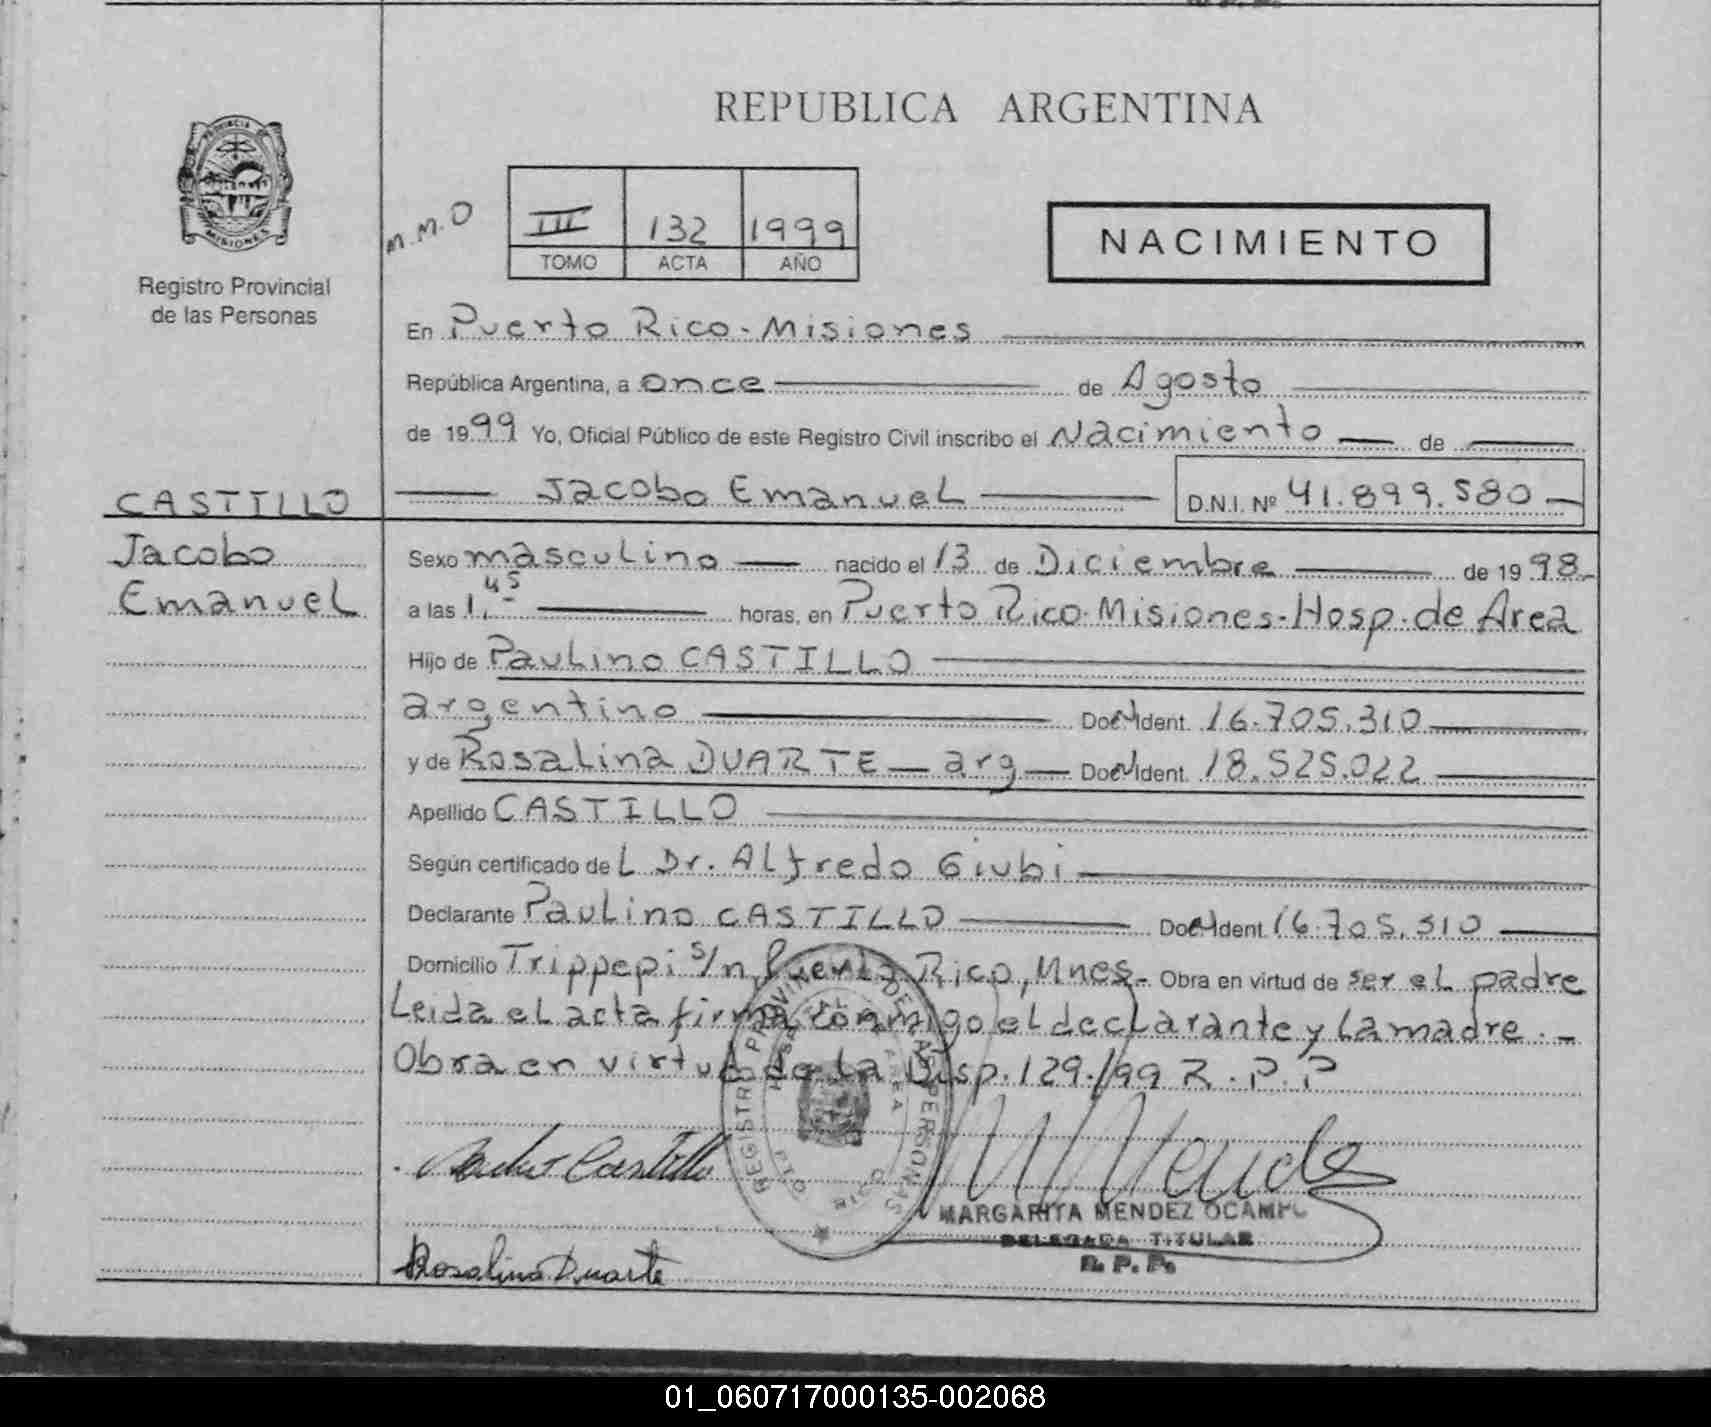 REPUBLICA ARGENTINA
PROVINCIA DE
MISIONES
Registro Provincial
de las Personas
M.M.O
III 132 1999
TOMO ACTA AÑO
NACIMIENTO
En Puerto Rico - Misiones
República Argentina, a once de Agosto
de 1999 Yo, Oficial Público de este Registro Civil inscribo el Nacimiento de
CASTILLO
Jacobo Emanuel D.N.I. Nº 41.899.580
Jacobo
Emanuel
Sexo masculino nacido el 13 de Diciembre de 1998
a las 1,45 horas, en Puerto Rico. Misiones - Hosp. de Area
Hijo de Paulino CASTILLO
argentino Doc Ident. 16.705.310
y de Rosalina DUARTE — arg — Doc Ident. 18.525.022
Apellido CASTILLO
Según certificado de L Dr. Alfredo Giubi
Declarante Paulino CASTILLO Doc Ident. 16.705.310
Domicilio Trippepi s/n, Puerto Rico, Mnes. Obra en virtud de ser el padre
Leida el acta firma conmigo el declarante y la madre. -
Obra en virtud de la Disp. 129/99 R.P.P
REGISTRO PROVINCIAL DE LAS PERSONAS
Castillo
MARGARITA MENDEZ OCAMPO
DELEGADA TITULAR
R. P. P.
Rosalina Duarte
01_060717000135-002068